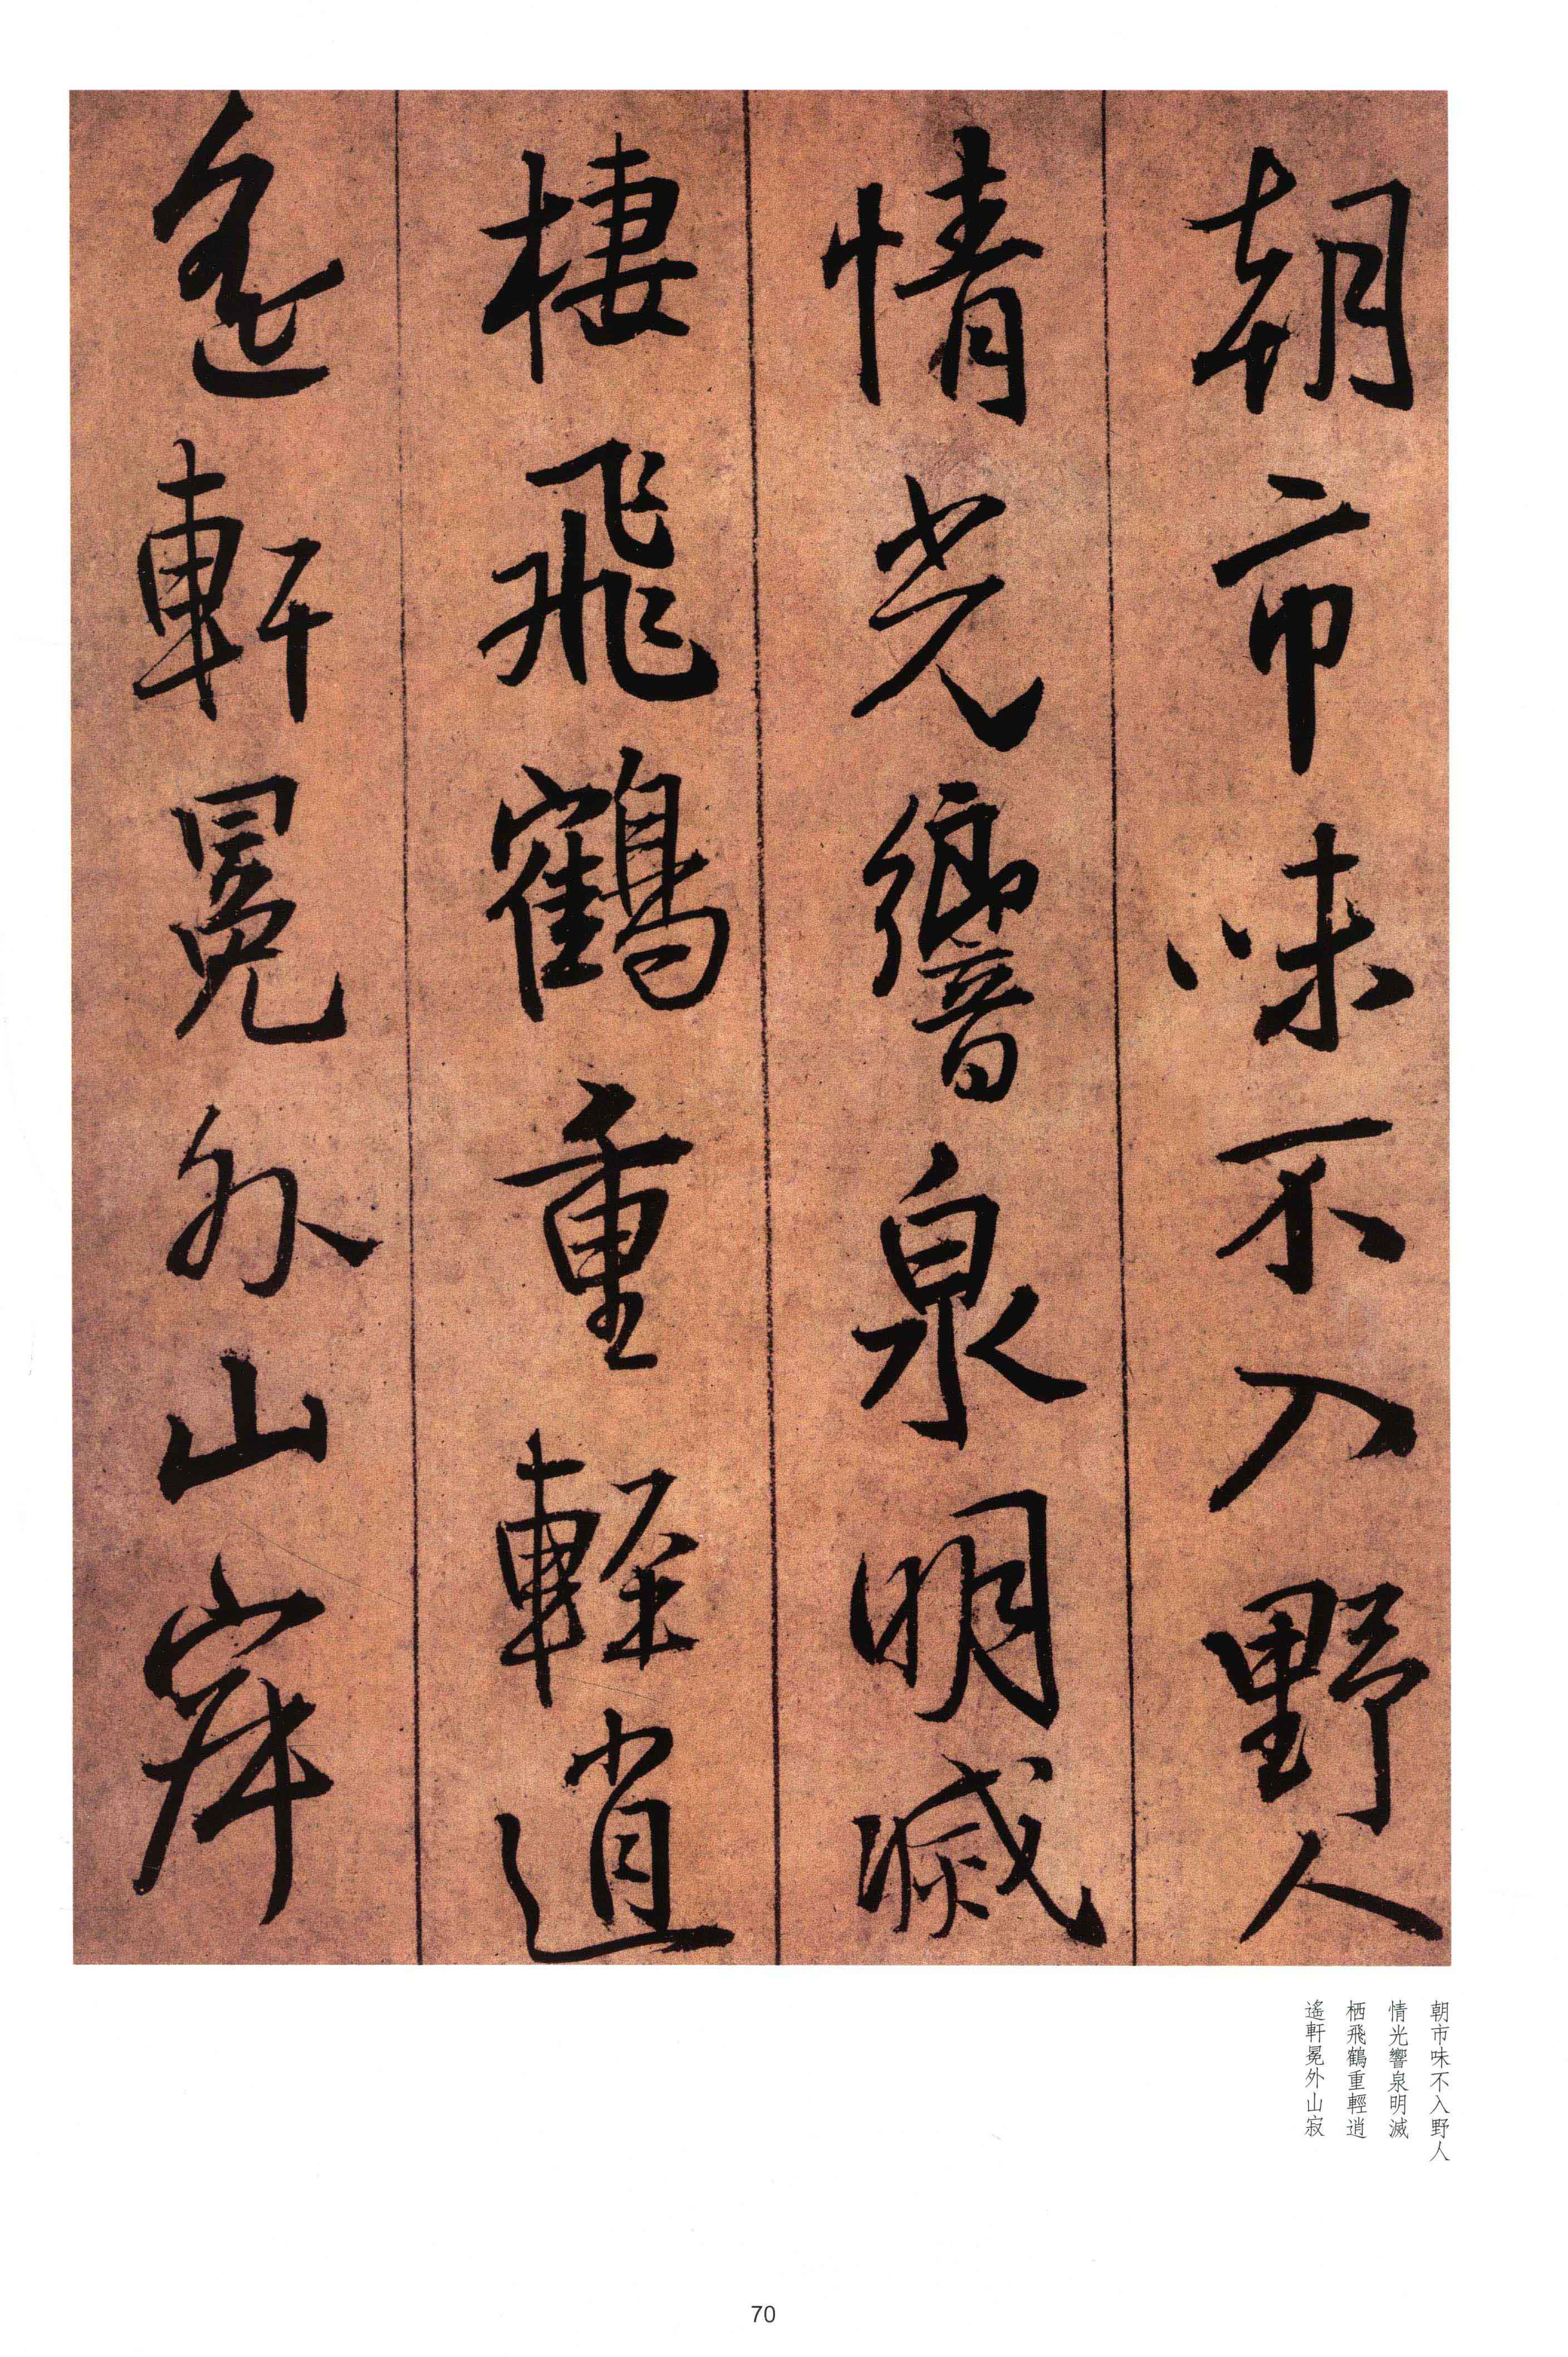 朝市味不入野人
情光響泉明滅
棲飛鶴重輕逍
遙軒冕外山岸
朝市味不入野人
情光響泉明滅
栖飛鶴重輕逍
遙軒冕外山寂
70